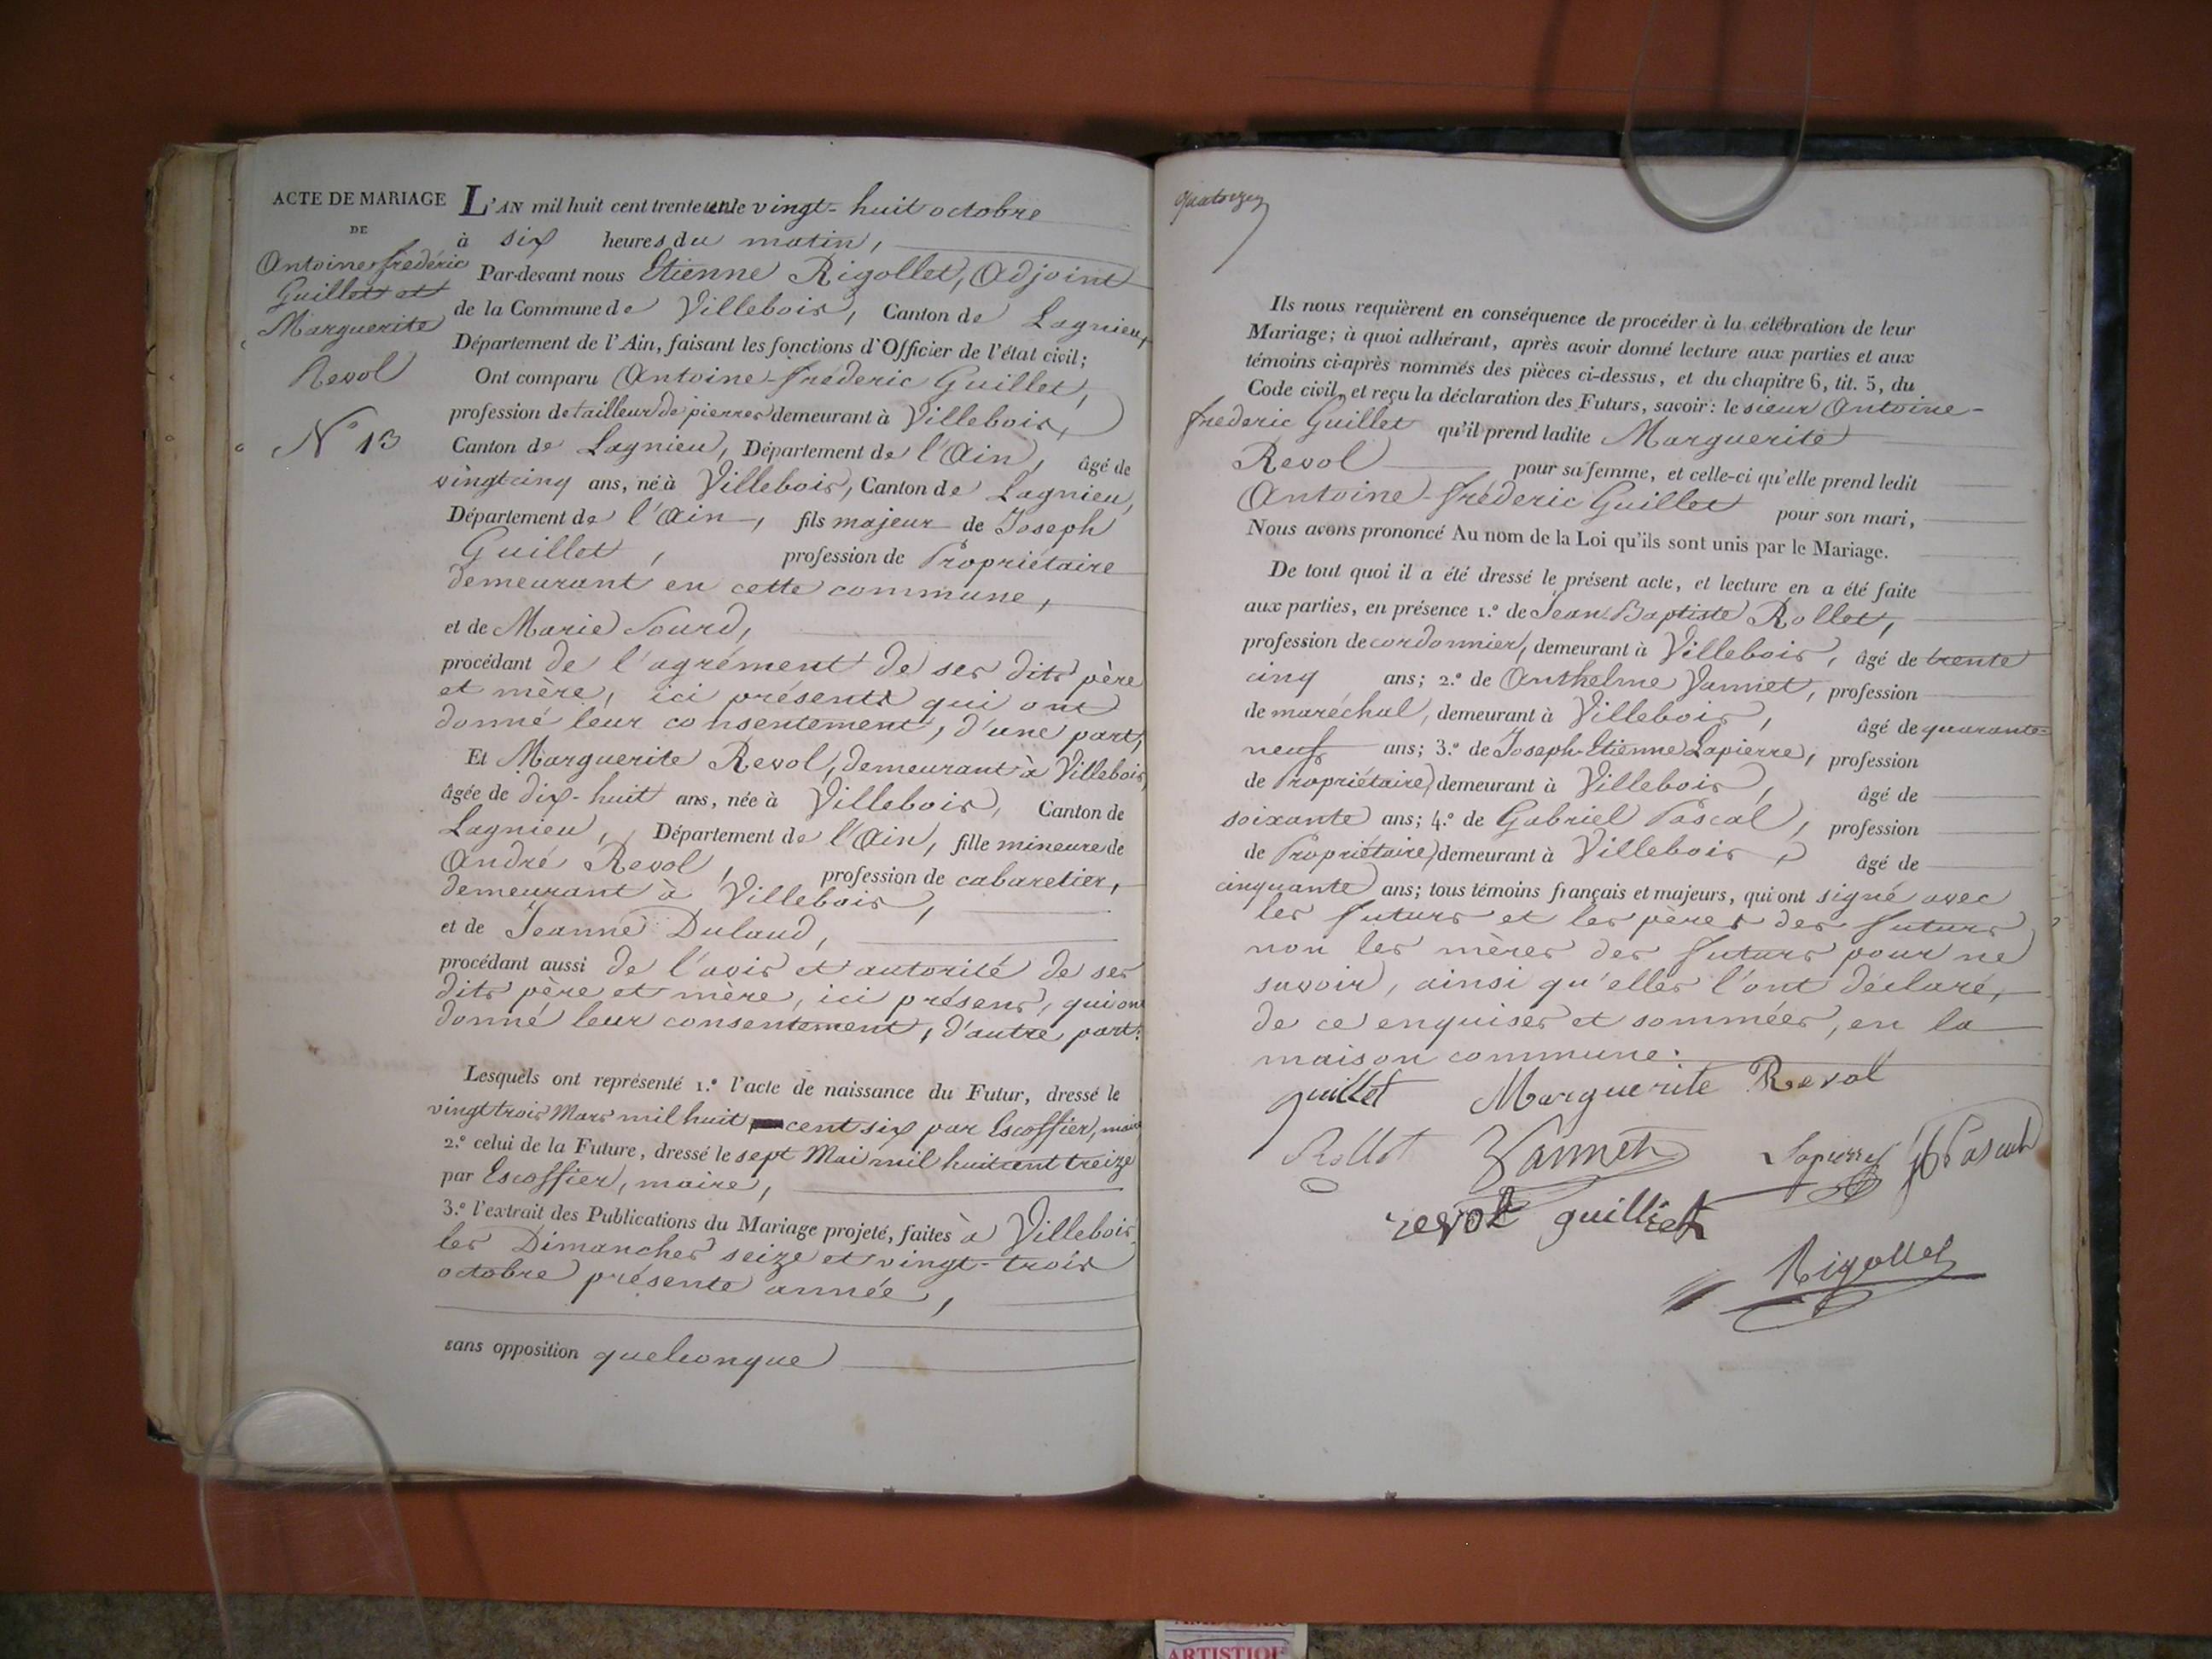 ACTE DE MARIAGE
DE
Antoine frédéric
Guillet et
Marguerite
Revol
N° 13
L'AN mil huit cent trente un le vingt-huit octobre
à six heures du matin,
Par-devant nous Etienne Rigollet, Adjoint
de la Commune de Villebois, Canton de Lagnieu,
Département de l'Ain, faisant les fonctions d'Officier de l'état civil;
Ont comparu Antoine-frédéric Guillet,
profession de tailleur de pierres demeurant à Villebois,
Canton de Lagnieu, Département de l'Ain, âgé de
vingt cinq ans, né à Villebois, Canton de Lagnieu,
Département de l'Ain, fils majeur de Joseph
Guillet, profession de Propriétaire
demeurant en cette commune,
et de Marie Sourd,
procédant de l'agrément de ses dits père
et mère, ici présents qui ont
donné leur consentement, d'une part;
Et Marguerite Revol, demeurant à Villebois,
âgée de dix-huit ans, née à Villebois, Canton de
Lagnieu, Département de l'Ain, fille mineure de
André Revol, profession de cabaretier,
demeurant à Villebois,
et de Jeanne Dulaud,
procédant aussi de l'avis et autorité de ses
dits père et mère, ici présens, qui ont
donné leur consentement, d'autre part:
Lesquels ont représenté 1.° l'acte de naissance du Futur, dressé le
vingt trois Mars mil huit cent six par Escoffier, maire
2.° celui de la Future, dressé le sept Mai mil huit cent treize
par Escoffier, maire,
3.° l'extrait des Publications du Mariage projeté, faites à Villebois
les Dimanches seize et vingt-trois
octobre présente année,
sans opposition quelconque
quatorze
Ils nous requièrent en conséquence de procéder à la célébration de leur
Mariage; à quoi adhérant, après avoir donné lecture aux parties et aux
témoins ci-après nommés des pièces ci-dessus, et du chapitre 6, tit. 5, du
Code civil, et reçu la déclaration des Futurs, savoir: le sieur Antoine-
frédéric Guillet qu'il prend ladite Marguerite
Revol pour sa femme, et celle-ci qu'elle prend ledit
Antoine-frédéric Guillet pour son mari,
Nous avons prononcé Au nom de la Loi qu'ils sont unis par le Mariage.
De tout quoi il a été dressé le présent acte, et lecture en a été faite
aux parties, en présence 1.° de Jean-Baptiste Rollet,
profession de cordonnier, demeurant à Villebois, âgé de trente
cinq ans; 2.° de Anthelme Vannet, profession
de maréchal, demeurant à Villebois, âgé de quarante-
neuf ans; 3.° de Joseph-Etienne Lapierre, profession
de Propriétaire, demeurant à Villebois, âgé de
soixante ans; 4.° de Gabriel Pascal, profession
de Propriétaire, demeurant à Villebois, âgé de
cinquante ans; tous témoins français et majeurs, qui ont signé avec
les futurs et les pères des futurs
non les mères des futurs pour ne
savoir, ainsi qu'elles l'ont déclaré,
de ce enquises et sommées, en la
maison commune.
guillet Marguerite Revol
Rollet Vannet Lapierre Pascal
revol guilliet
Rigollet
ARTISTIQUE